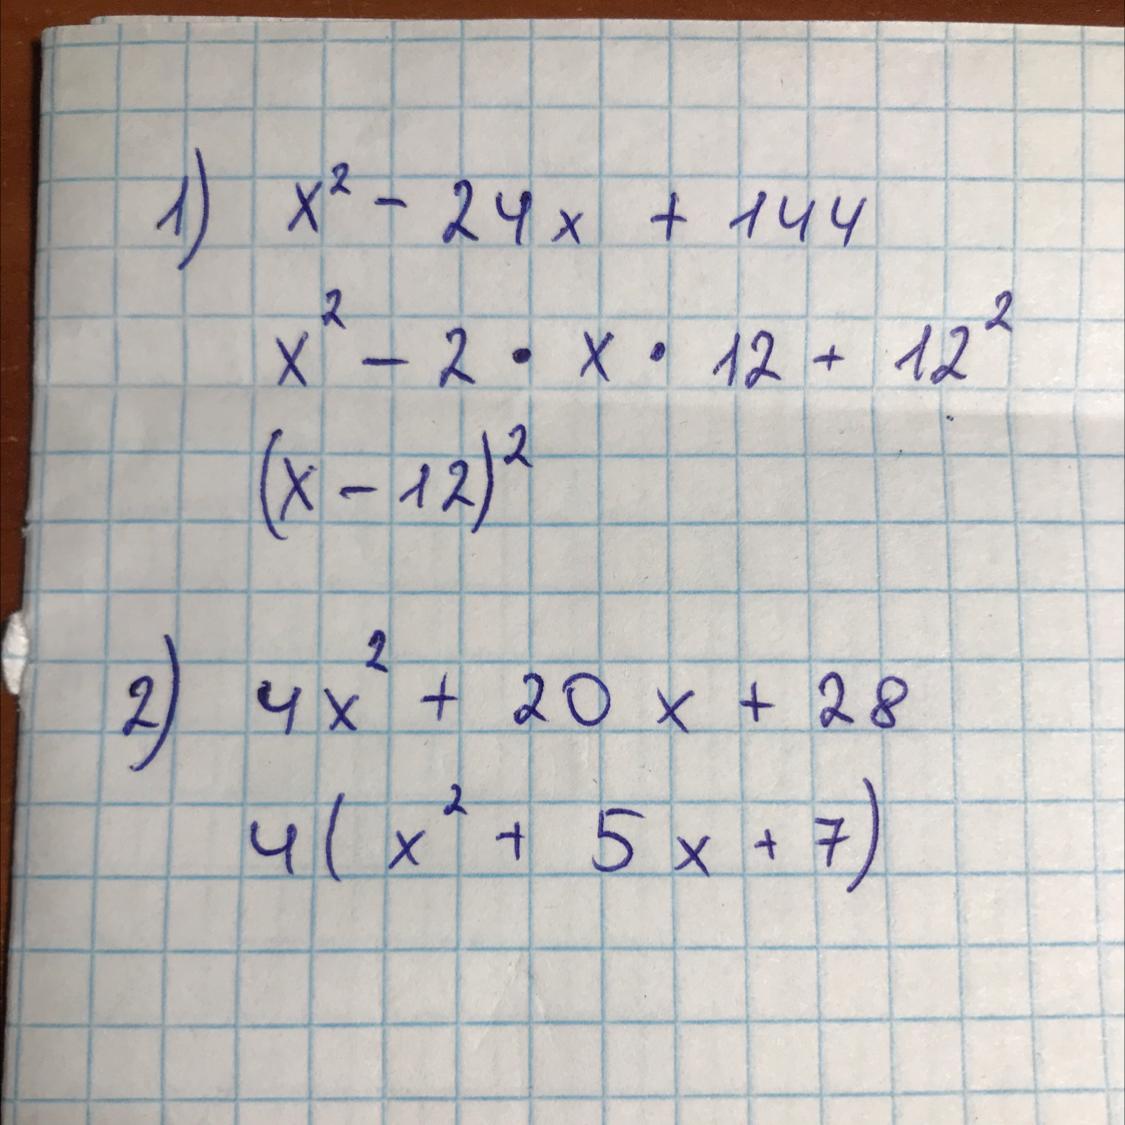 1) x² - 24x + 144
x² - 2 • x • 12 + 12²
(x - 12)²
2) 4x² + 20x + 28
4(x² + 5x + 7)